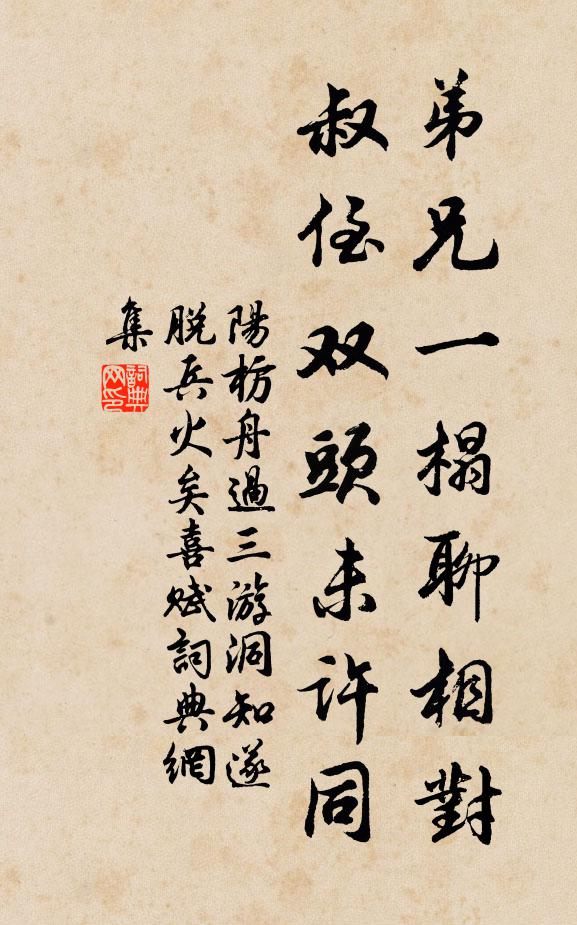 弟兄一榻聊相對
叔侄双頭未許同
陽枋舟過三游洞知遂
脱兵火矣喜賦詞典網
集
詞典
网印